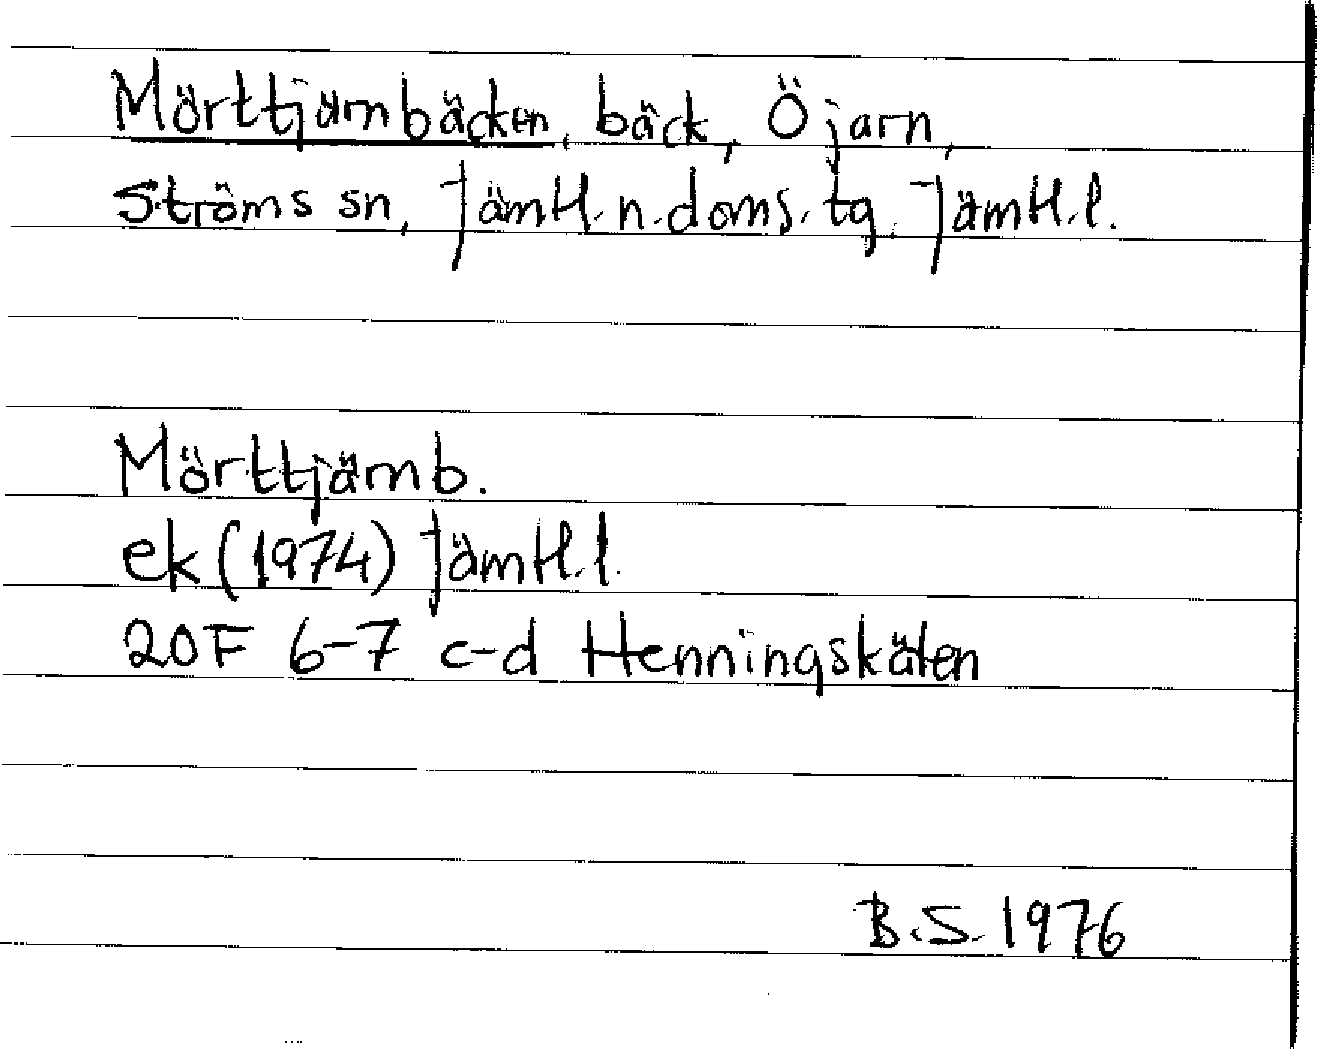 Mörttjärnbäcken, bäck, Öjarn,
Ströms sn, Jämtl. n. doms. tg, Jämtl. l.
Mörttjärnb.
ek (1974) Jämtl. l.
20F 6-7 c-d Henningskälen
B.S. 1976